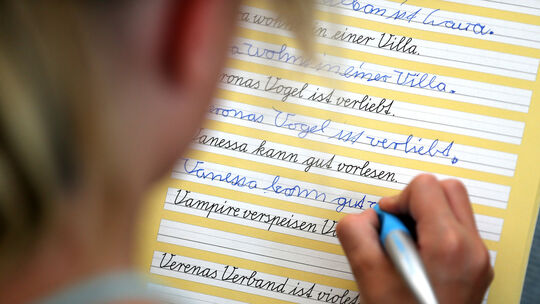 ist Laura.
wohnt in einer Villa.
wohnt in einer Villa.
Veronas Vogel ist verliebt.
Veronas Vogel ist verliebt.
Vanessa kann gut vorlesen.
Vanessa kann gut
Vampire verspeisen
Verenas Verband ist violett